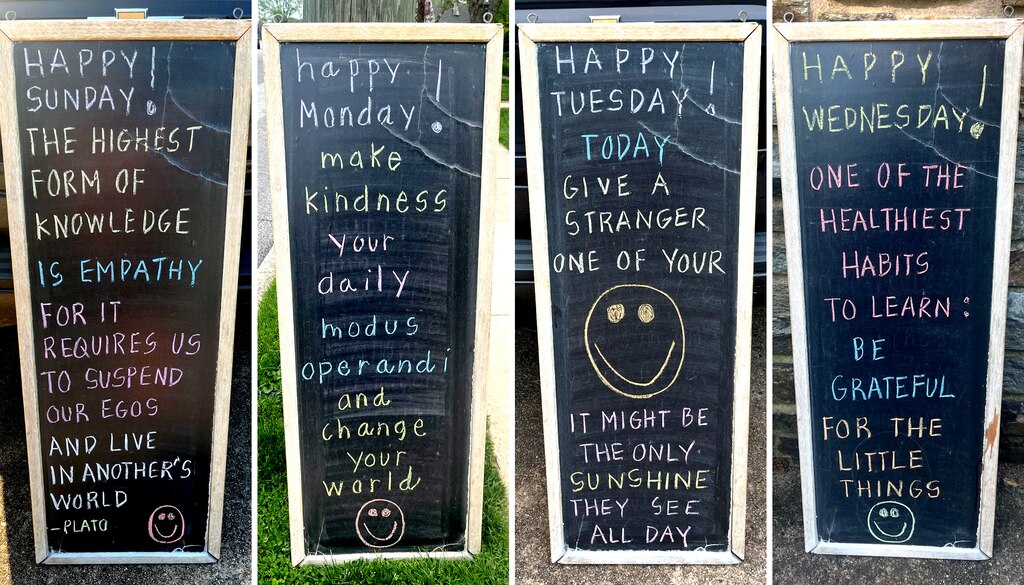 HAPPY!
SUNDAY
THE HIGHEST
FORM OF
KNOWLEDGE
IS EMPATHY
FOR IT
REQUIRES US
TO SUSPEND
OUR EGOS
AND LIVE
IN ANOTHER'S
WORLD
-PLATO
happy!
Monday
make
kindness
your
daily
modus
operandi
and
change
your
world
HAPPY!
TUESDAY
TODAY
GIVE A
STRANGER
ONE OF YOUR
IT MIGHT BE
THE ONLY
SUNSHINE
THEY SEE
ALL DAY
HAPPY!
WEDNESDAY
ONE OF THE
HEALTHIEST
HABITS
TO LEARN:
BE
GRATEFUL
FOR THE
LITTLE
THINGS